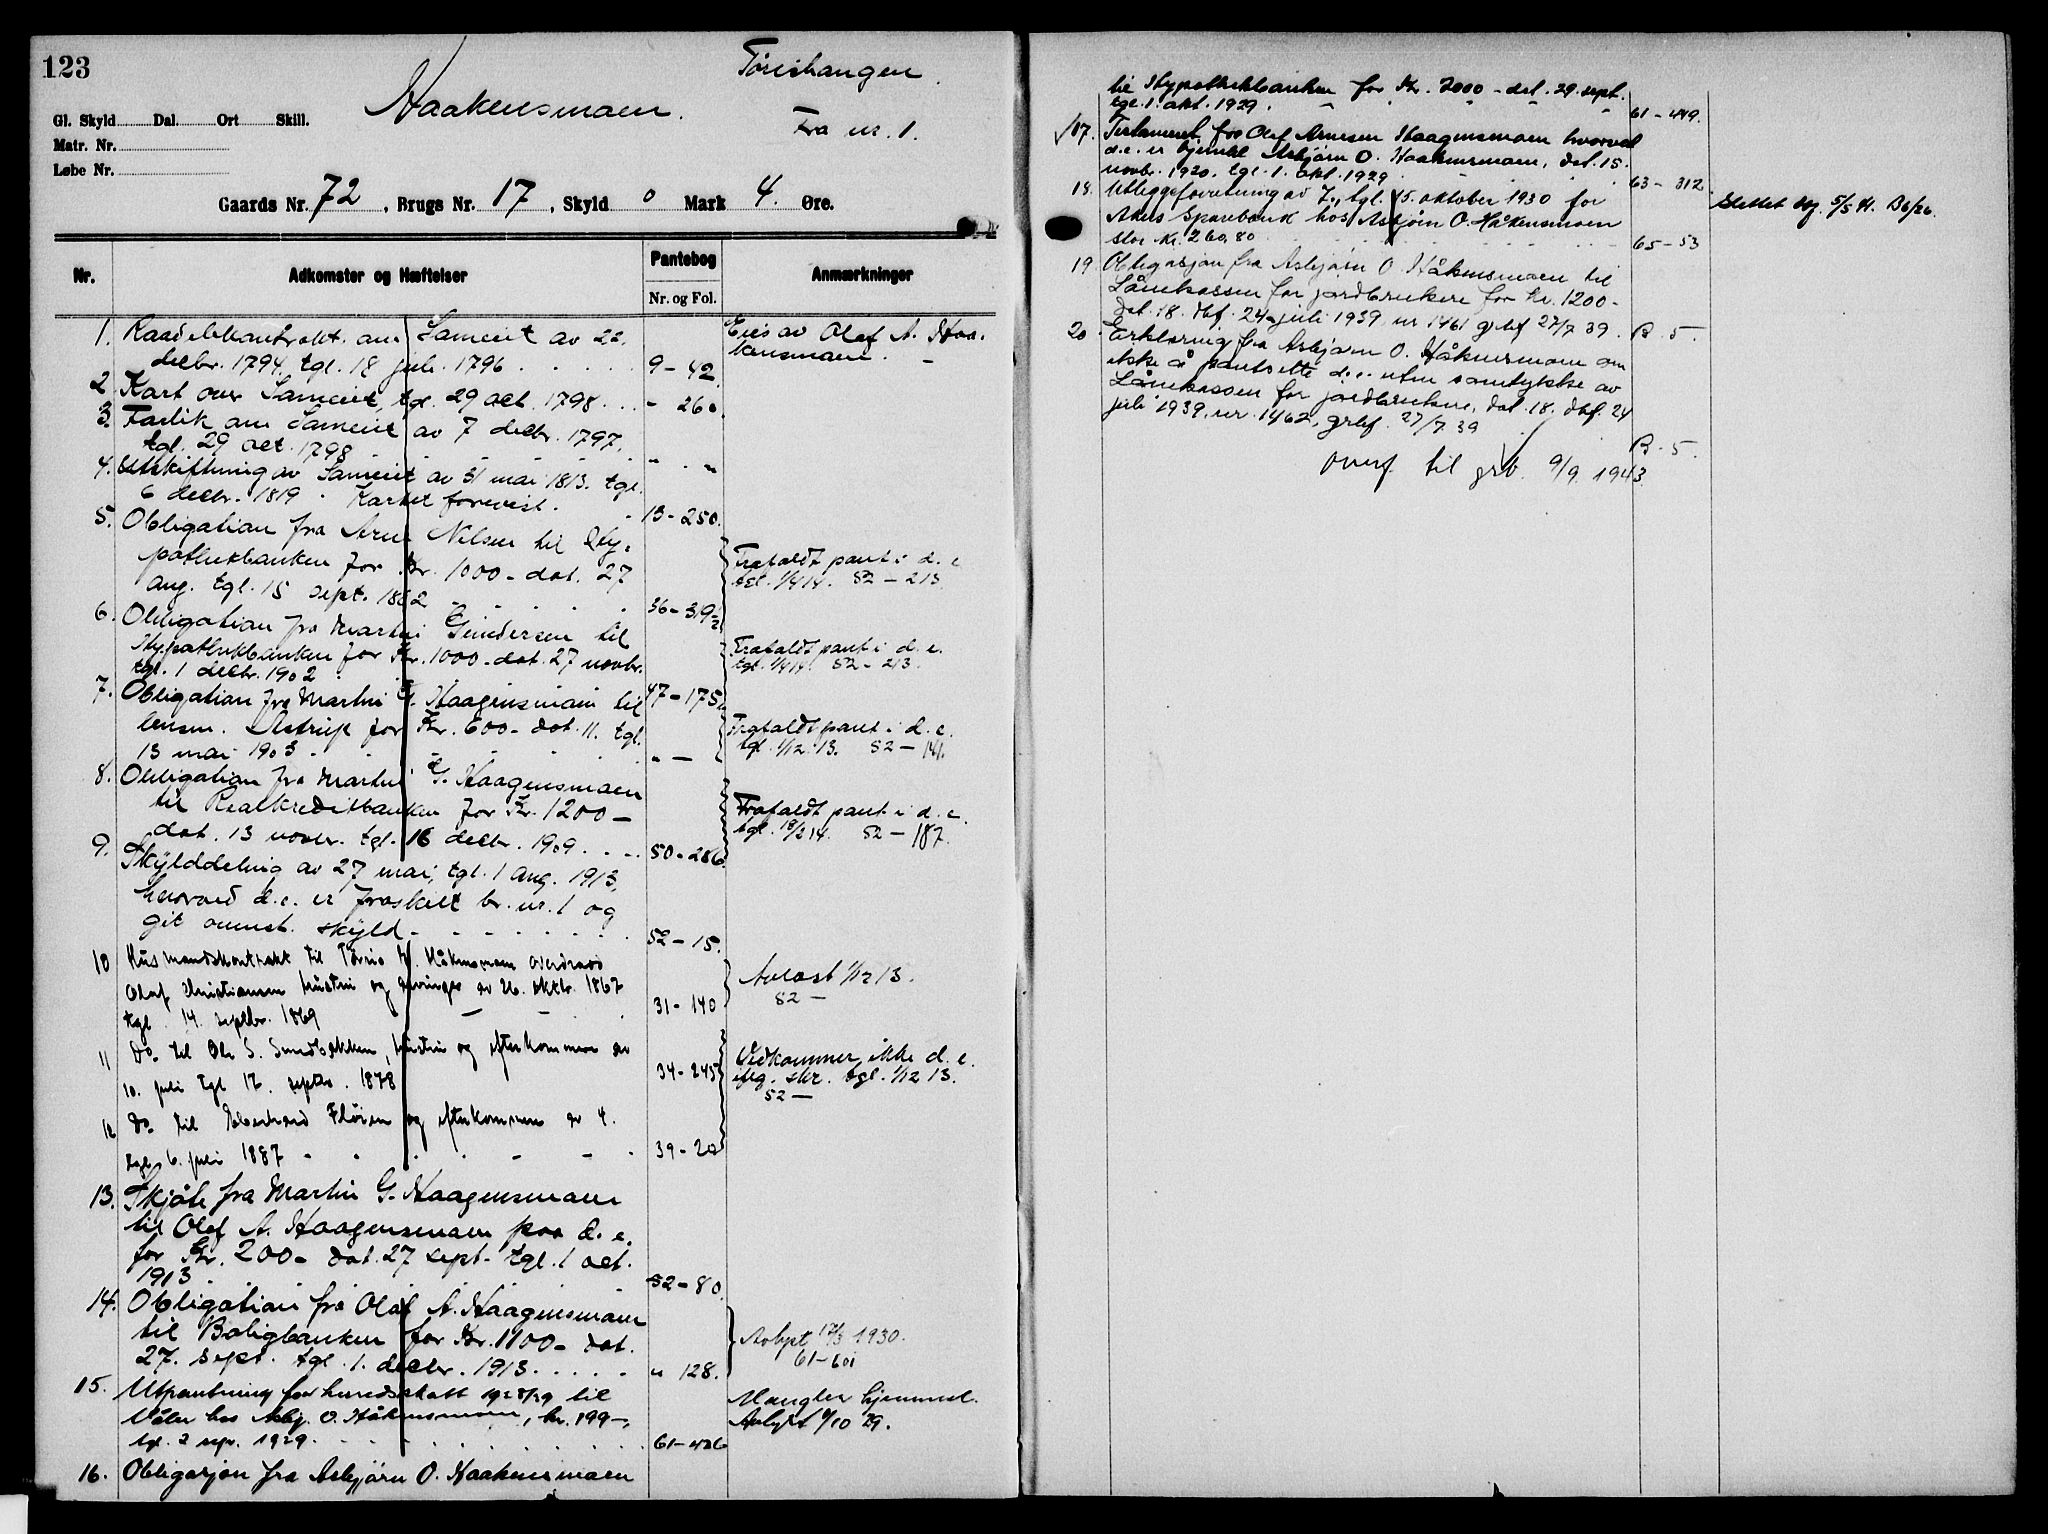 123
Haakensmoen.
Töreshaugen.
Fra nr. 1.
Gl. Skyld Dal. Ort Skill.
Matr. Nr.
Løbe Nr.
Gaards Nr. 72, Brugs Nr. 17, Skyld 0 Mark 4. Øre.
Nr. Adkomster og Hæftelser Pantebog Anmærkninger
Nr. og Fol.
1. om Sameiet av 22. Eies av Olef A. Haa-
decbr. 1794, tgl. 18 juli 1796 9 - 42 kensmoen.
2 Kart over Sameiet, tgl. 29 oct. 1798 - 260
3. Forlik om Sameiet av 7 decbr. 1797,
tgl. 29 oct. 1798 " "
4. Utskiftning av Sameiet av 31 mai 1813. tgl.
6 decbr. 1819. Kartet forevist. 13 - 250.
5. Obligation fra Arne Nilsen til Hy-
pothekbanken for Kr. 1000 - dat. 27 Frafaldt pant i d. e.
aug. tgl. 15 sept. 1882 36 - 319 2 tgl. 1/4 14. 52 - 213.
6. Obligation fra Martin Gundersen til
Hypothekbanken for Kr. 1000 - dat. 27 novbr. Frafaldt pant i d. e.
tgl. 1 decbr. 1902 47 - 175. tgl. 1/4 14. 52 - 213.
7. Obligation fra Martin G. Haagensmoen til
lensm. Astrup for Kr. 600 - dat. 11. tgl. Frafaldt pant i d. e.
13 mai 1903 " - tgl. 1/12 13. 52 - 141.
8. Obligation fra Martin G. Haagensmoen
til Realkreditbanken for Kr. 1200 - Frafaldt pant i d. e.
dat. 13 novbr. tgl. 16 decbr. 1909 50 - 286 tgl. 18/2 14. 52 - 187.
9. Skylddeling av 27 mai, tgl. 1 aug. 1913,
hvorved d. e. er fraskilt br. nr. 1 og
git skyld 52 - 15.
10 Husmandskontrakt til Törris H. Håkensmoen
Olaf Christiansen hustru og av 26. oktbr. 1867 Avlöst 1/12 13.
tgl. 14. septbr. 1869 31 - 140 52 -
11 Do. til Ole S. Sundbakken, hustru og efterkommere av Vedkommer ikke d. e.
10. juli tgl 17. septbr. 1878 34 - 245 iflg. skr. tgl. 1/12 13.
52 -
12 Do. til Eberhard Flöien og efterkommere av 4.
tgl. 6. juli 1887 39 - 20
13. Skjöte fra Martin G. Haagensmoen
til Olef A. Haagensmoen paa d. e.
for Kr. 200 - dat. 27 sept. tgl. 1 oct.
1913 52 - 80.
14. Obligation fra Olaf A. Haagensmoen
til Boligbanken for Kr. 1100 - dat. Avlyst 17/3 1930.
27. sept. tgl. 1. decbr. 1913 " 128. 61 - 601
15. Utpantning for herredsskatt 1928/29 til Mangler hjemmel.
Våler hos Asbj. O. Håkensmoen, kr. 199 -, Avlyst /10 29.
tgl. 2 sep. 1929. 61 - 426
16. Obligasjon fra Asbjörn O. Haakensmoen
til Hypothekbanken for Kr. 2000 - dat. 29. sept.
tgl. 1. okt. 1929. 61 - 449.
17. Testament fra Olef Arnesen Haagensmoen hvorved
d. e. er hjemlet Asbjörn O. Haakensmoen, dat. 15.
novbr. 1920, tgl. 1. okt. 1929 63 - 312
18. Utleggsforretning av 7., tgl. 15. oktober 1930 for Slettet
Sparebank hos Asbjørn O. Håkensmoen
stor kr. 260,80 65 - 53
19. Obligasjon fra Asbjørn O. Håkensmoen til
Lånekassen for jordbrukere for kr. 1200 -
dat. 18. dbf. 24. juli 1939 nr 1461 grbf 27/7 39. B. 5.
20. Erklæring fra Asbjørn O. Håkensmoen om
ikke å pantsette d. e. uten samtykke av
Lånekassen for jordbrukere, dat. 18. dbf. 24
juli 1939, nr. 1462, grbf. 27/7 39 B. 5.
overf. til grb. 9/9 1943.